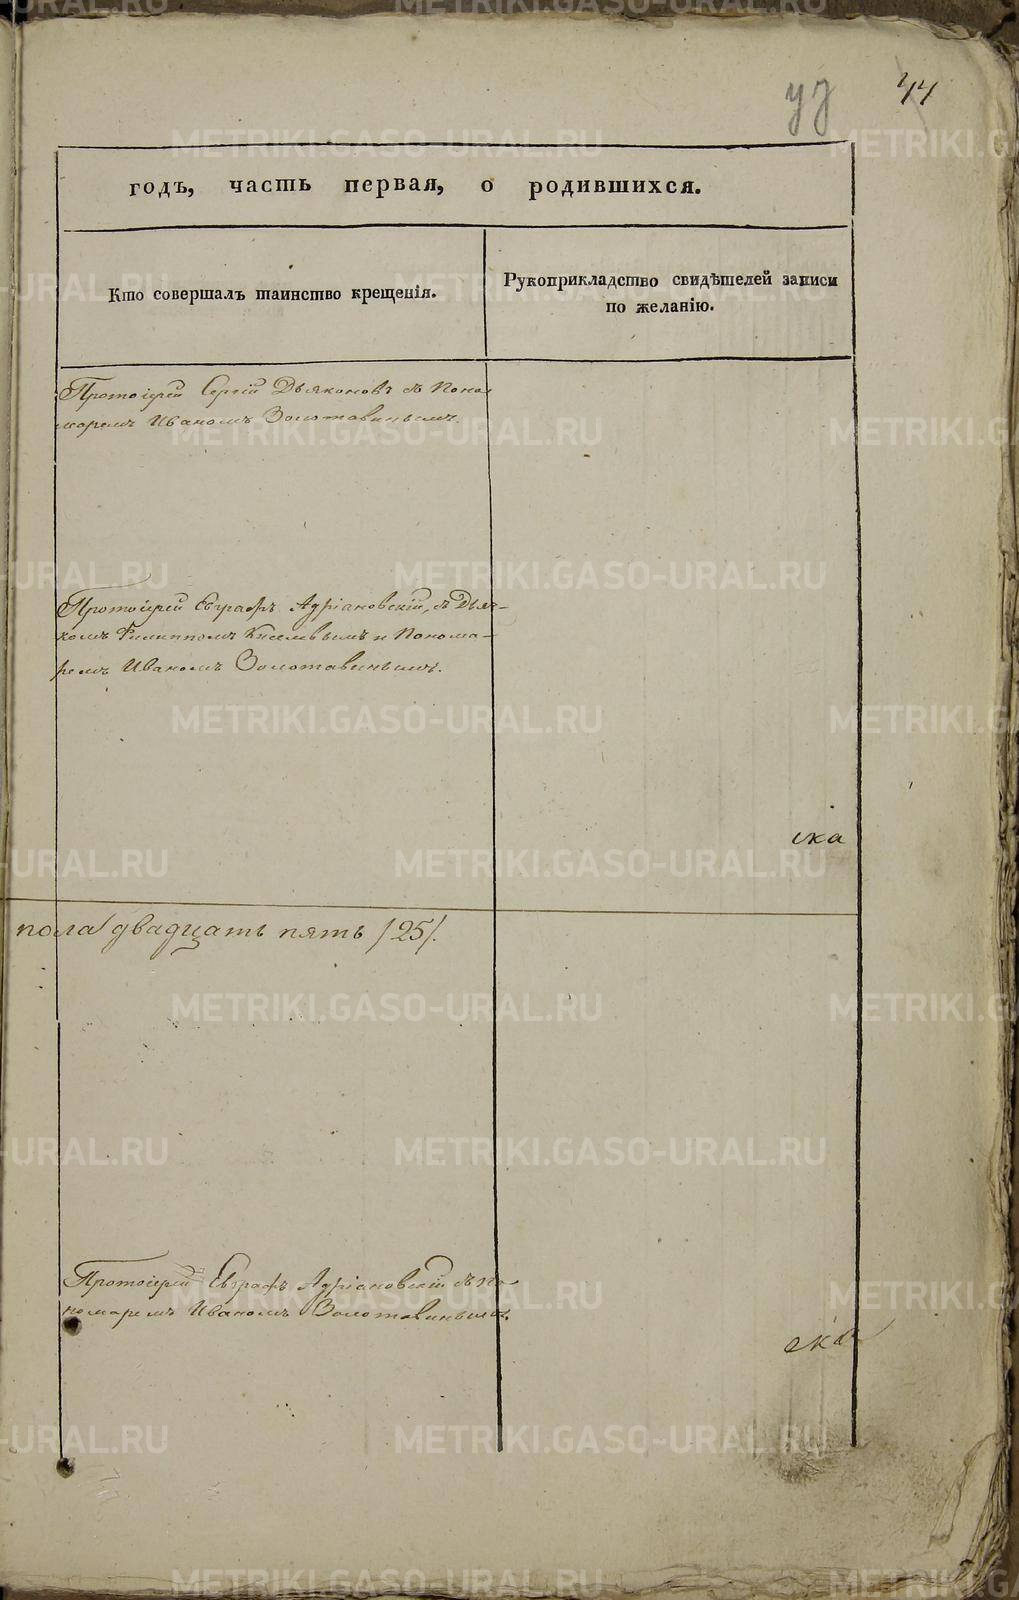 44
годъ, часть первая, о родившихся.
Кто совершалъ таинство крещенія.
Рукоприкладство свидѣтелей записи
по желанію.
Протоіерей Сергій Дьяконовъ съ Поно
маремъ Иваномъ Золотавинымъ.
Протоіерей Евграфъ Адріановскій, съ Дьяч-
комъ Филиппомъ Киселевымъ и Понома-
ремъ Иваномъ Золотавинымъ.
ска
пола двадцать пять /25/.
Протоіерей Евграфъ Адріановскій съ по-
номаремъ Иваномъ Золотавинымъ.
METRIKI.GASO-URAL.RU